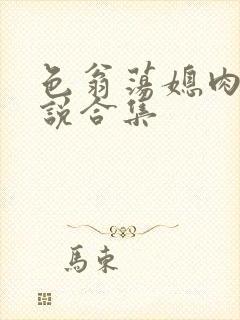 色翁荡媳肉
说合集
馬東